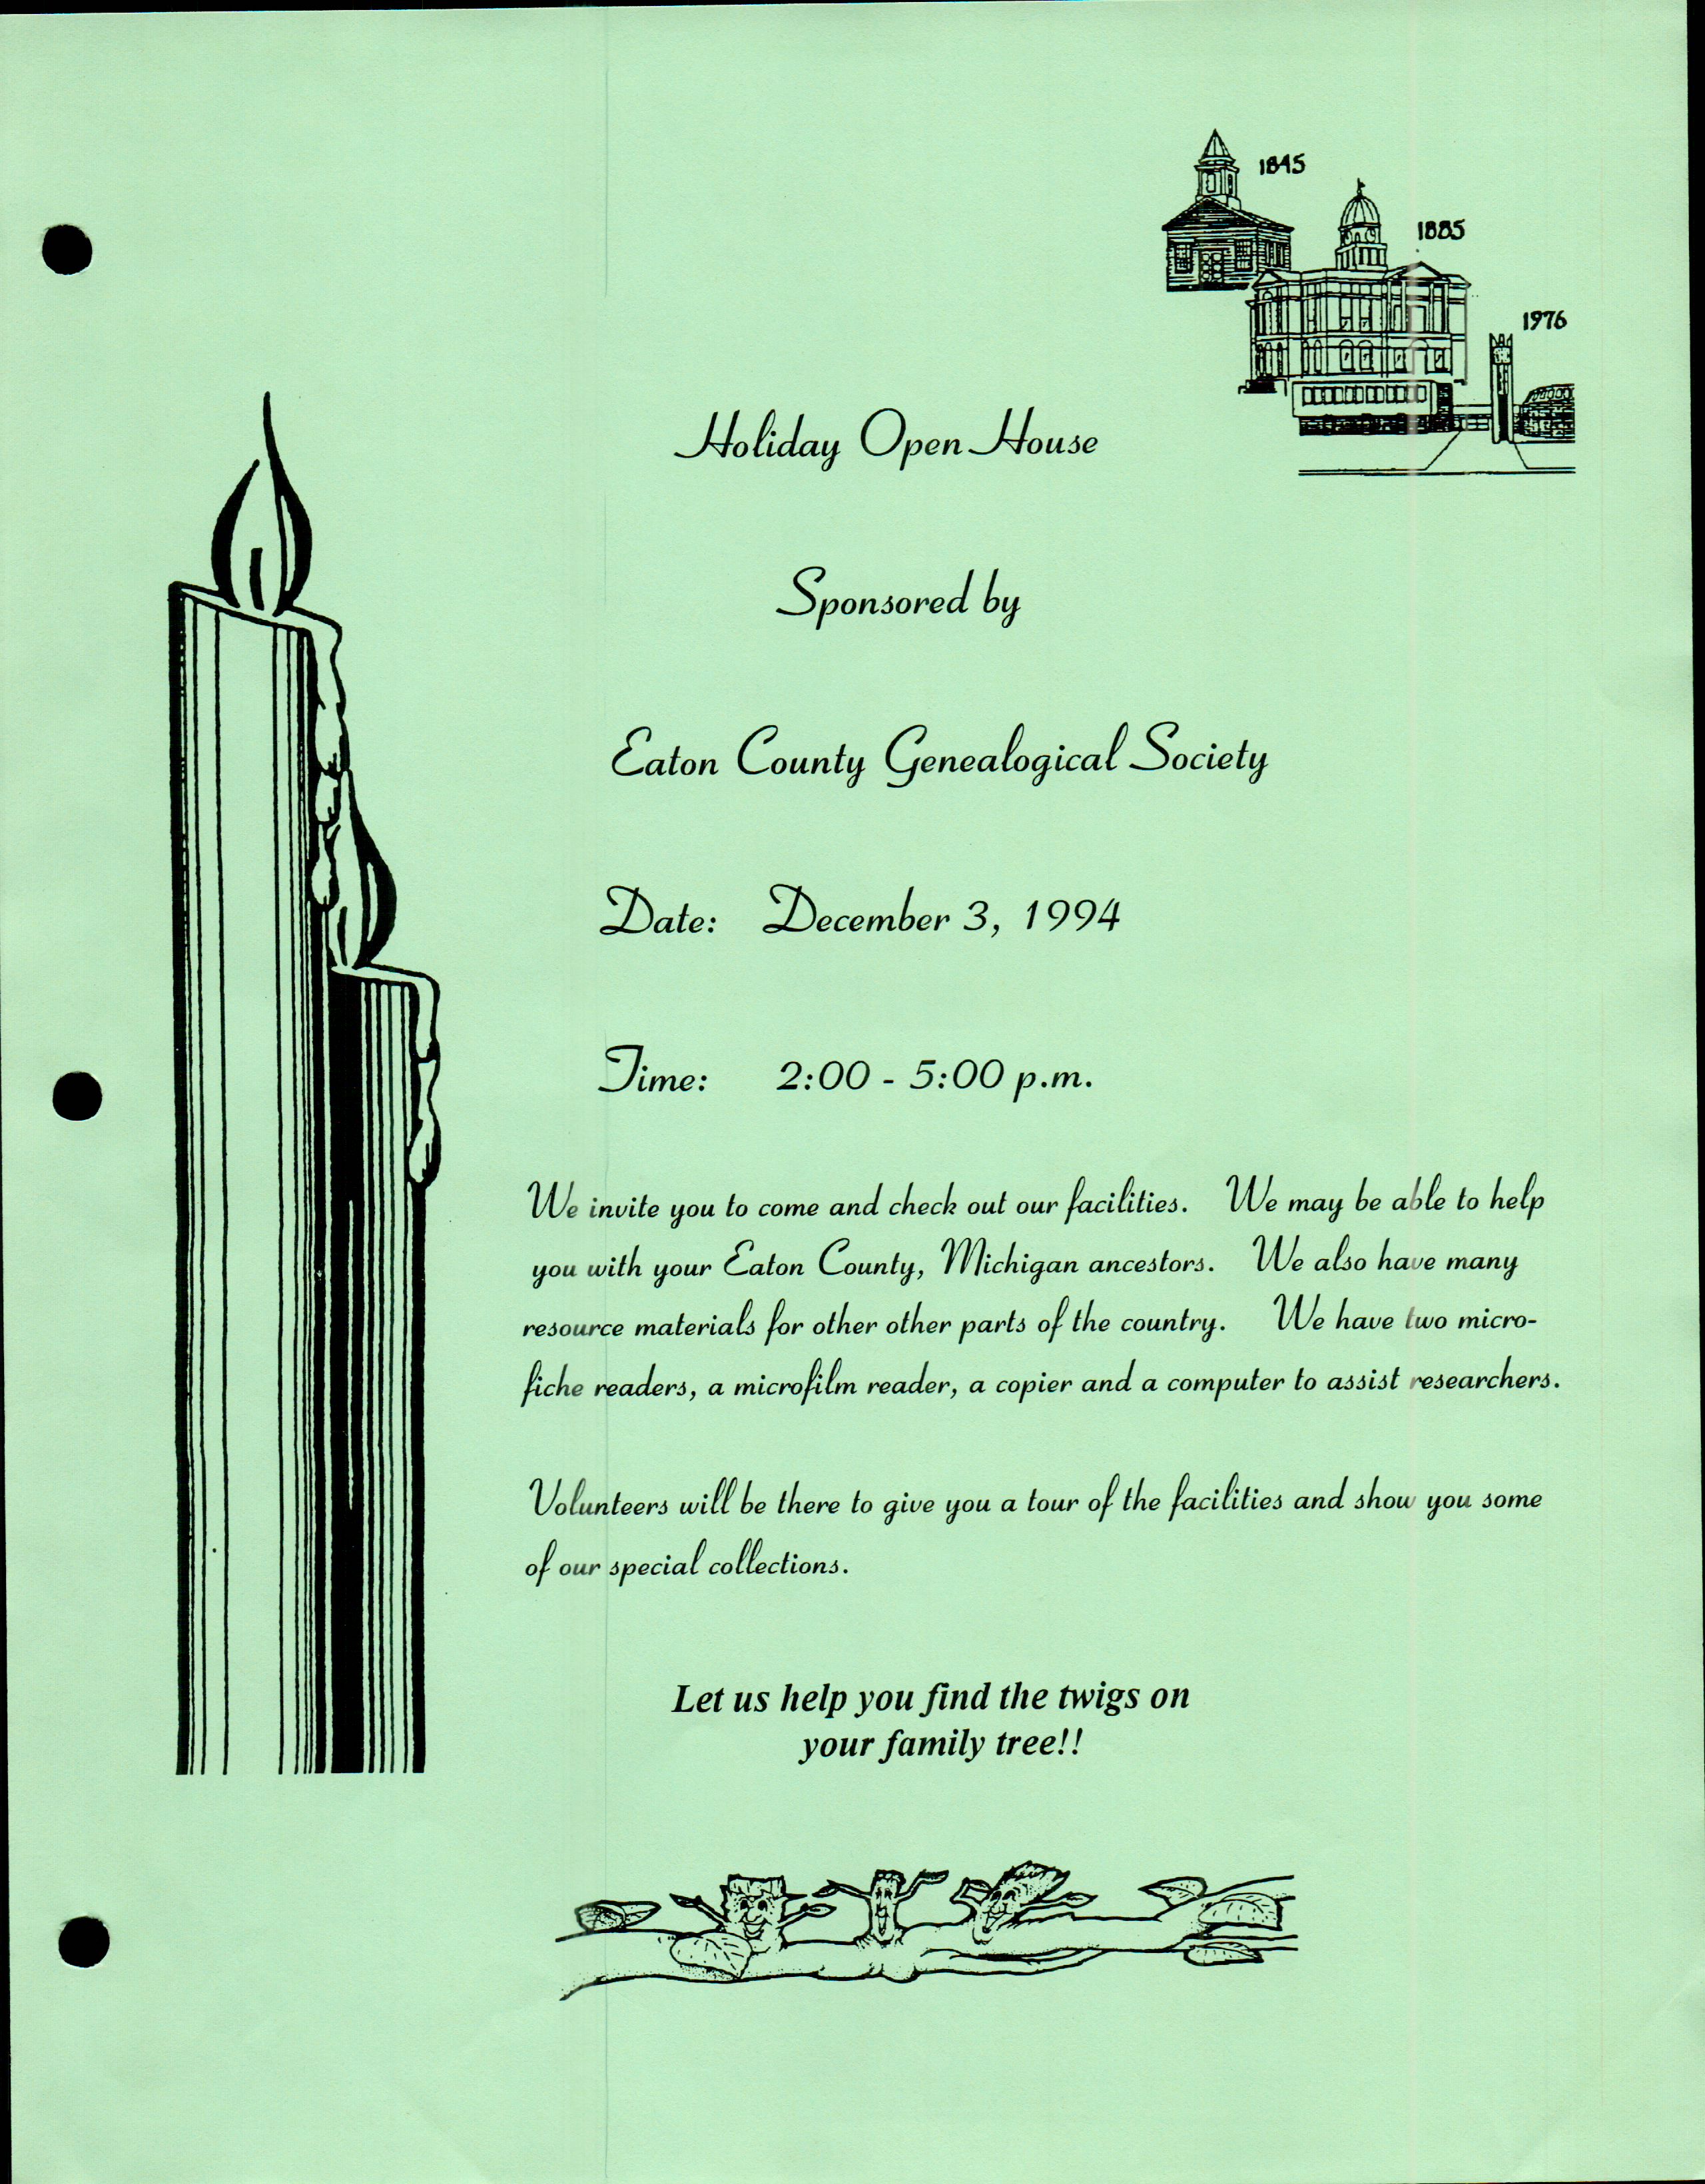 1845
1885
1976
Holiday Open House
Sponsored by
Eaton County Genealogical Society
Date: December 3, 1994
Time: 2:00 - 5:00 p.m.
We invite you to come and check out our facilities. We may be able to help
you with your Eaton County, Michigan ancestors. We also have many
resource materials for other other parts of the country. We have two micro-
fiche readers, a microfilm reader, a copier and a computer to assist researchers.
Volunteers will be there to give you a tour of the facilities and show you some
of our special collections.
Let us help you find the twigs on
your family tree!!